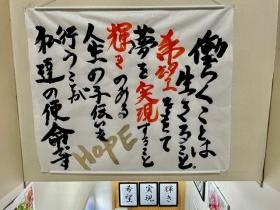 働らくことは
生きること
希望をもって
夢を実現すること
輝きのある
人生の手伝いを
行うことが
私達の使命です
HOPE
希望
実現
輝き